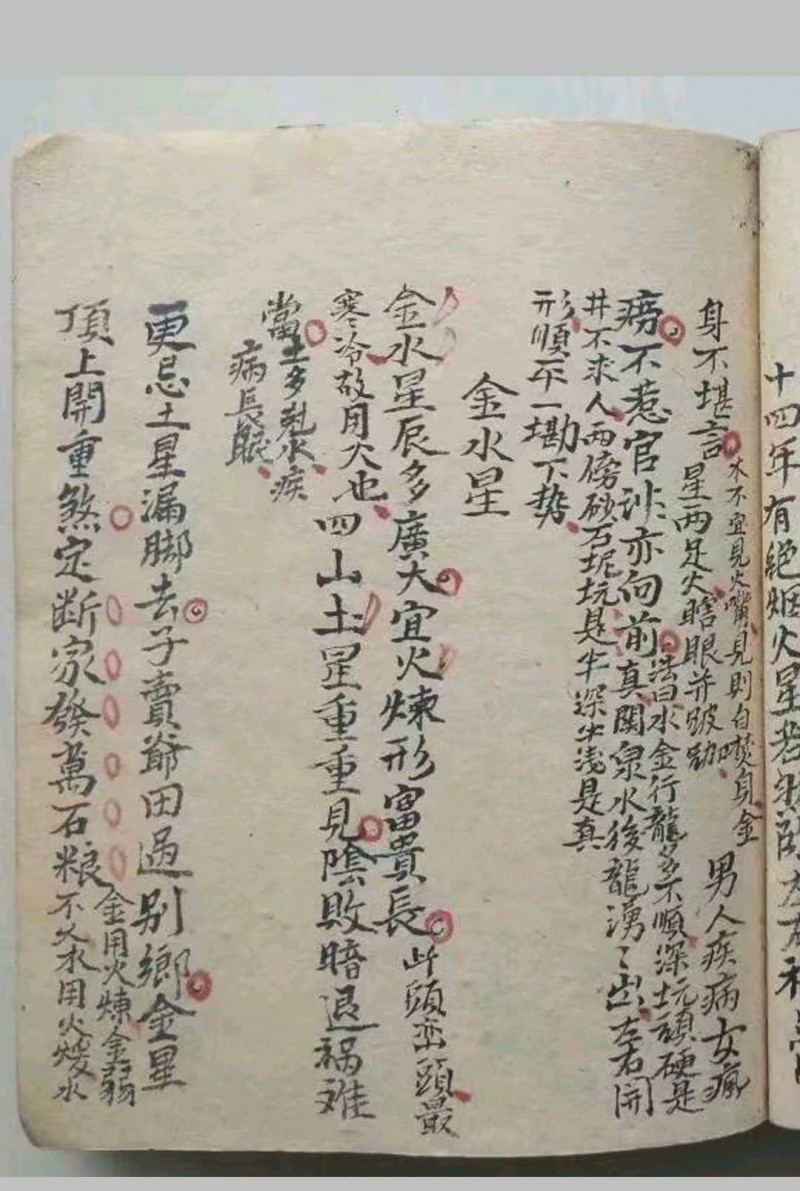 十四年有絕烟火星若
身不堪言
水不宜見火嘴見則自焚身金
星兩足火瞎眼并跛
男人疾病女瘋
癆不惹官訟亦向前
法曰水金行龍多不順深坑頑硬是
真関泉水後龍湧々出左右開
井不求人兩傍砂石坭坑是半深半浅是真
形順平一墈下势
金水星
金水星辰多廣大宜火煉形富貴長
此頭峦頭最
寒冷故用火也
四山土星重重見陰敗暗退祸难
當
土多剋水疾
病長眠
更忌土星漏脚去子賣爺田過别鄉金星
頂上開重煞定断家發萬石粮
金用火煉金弱
不久水用火煖水